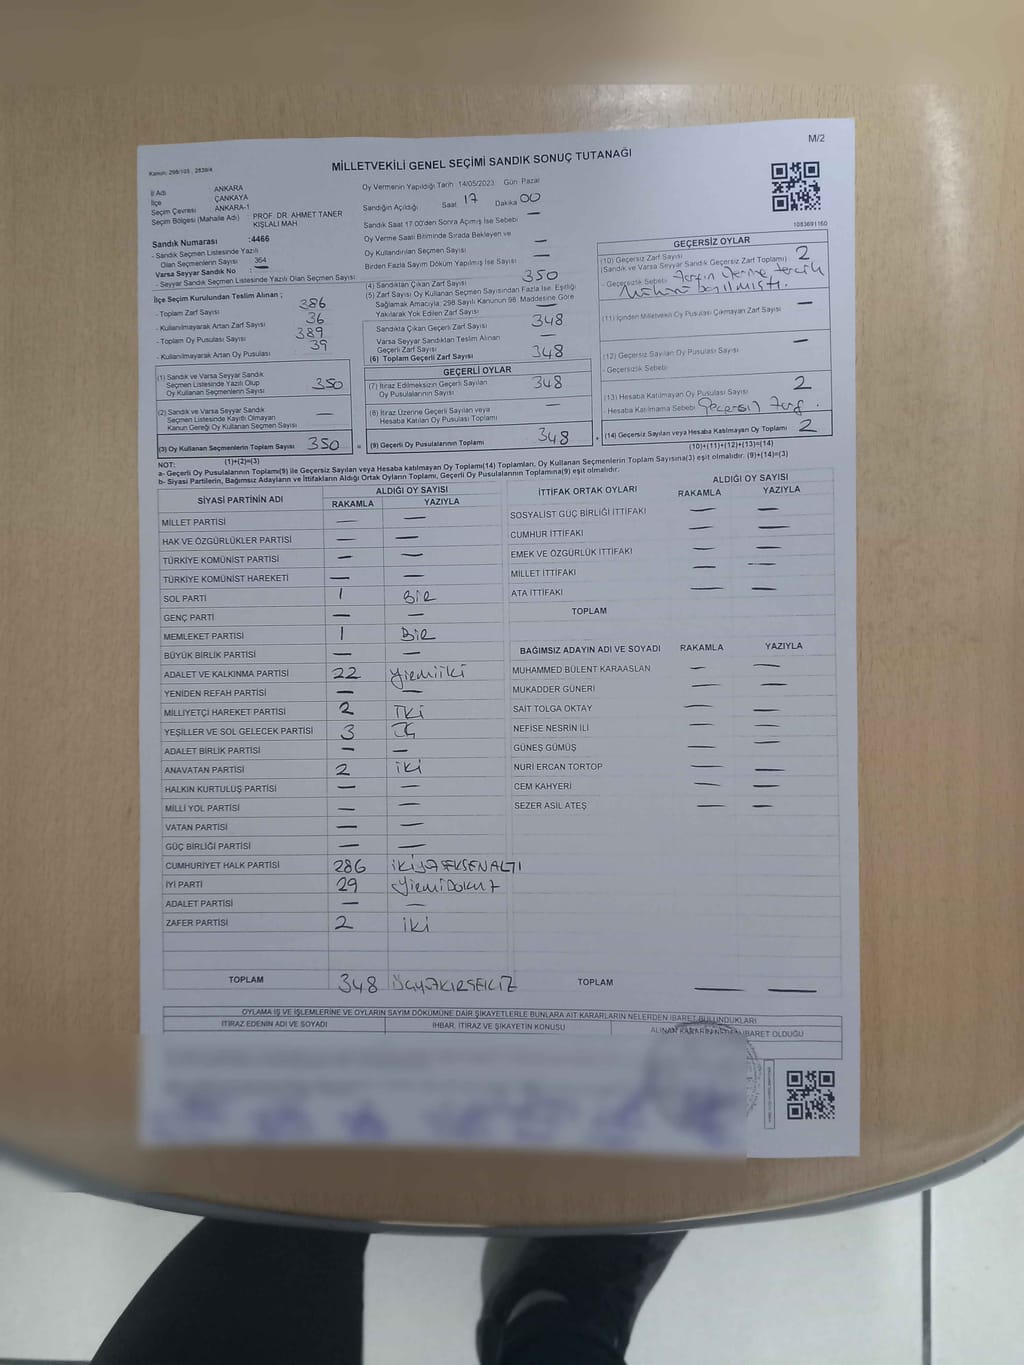 M/2
Kanun: 298/105 , 2839/4
MİLLETVEKİLİ GENEL SEÇİMİ SANDIK SONUÇ TUTANAĞI
İl Adı ANKARA
İlçe ÇANKAYA
Seçim Çevresi ANKARA-1
Seçim Bölgesi (Mahalle Adı) : PROF. DR. AHMET TANER KIŞLALI MAH
Sandık Numarası :4466
- Sandık Seçmen Listesinde Yazılı
Olan Seçmenlerin Sayısı 364
Varsa Seyyar Sandık No : —
- Seyyar Sandık Seçmen Listesinde Yazılı Olan Seçmen Sayısı:
İlçe Seçim Kurulundan Teslim Alınan ;
- Toplam Zarf Sayısı 386
- Kullanılmayarak Artan Zarf Sayısı 36
- Toplam Oy Pusulası Sayısı 389
- Kullanılmayarak Artan Oy Pusulası 39
(1) Sandık ve Varsa Seyyar Sandık
Seçmen Listesinde Yazılı Olup
Oy Kullanan Seçmenlerin Sayısı 350
(2) Sandık ve Varsa Seyyar Sandık
Seçmen Listesinde Kayıtlı Olmayan
Kanun Gereği Oy Kullanan Seçmen Sayısı —
(3) Oy Kullanan Seçmenlerin Toplam Sayısı 350 =
(1)+(2)=(3)
Oy Vermenin Yapıldığı Tarih 14/05/2023 Gün Pazar
Sandığın Açıldığı Saat 17 Dakika 00
Sandık Saat 17.00'den Sonra Açılmış İse Sebebi —
Oy Verme Saati Bitiminde Sırada Bekleyen ve
Oy Kullandırılan Seçmen Sayısı —
Birden Fazla Sayım Döküm Yapılmış İse Sayısı —
(4) Sandıktan Çıkan Zarf Sayısı 350
(5) Zarf Sayısı Oy Kullanan Seçmen Sayısından Fazla İse, Eşitliği
Sağlamak Amacıyla, 298 Sayılı Kanunun 98. Maddesine Göre
Yakılarak Yok Edilen Zarf Sayısı —
Sandıkta Çıkan Geçerli Zarf Sayısı 348
Varsa Seyyar Sandıktan Teslim Alınan
Geçerli Zarf Sayısı —
(6) Toplam Geçerli Zarf Sayısı 348
GEÇERLİ OYLAR
(7) İtiraz Edilmeksizin Geçerli Sayılan
Oy Pusulasının Sayısı 348
(8) İtiraz Üzerine Geçerli Sayılan veya
Hesaba Katılan Oy Pusulası Toplamı —
(9) Geçerli Oy Pusulalarının Toplamı 348 +
1083691160
GEÇERSİZ OYLAR
(10) Geçersiz Zarf Sayısı 2
(Sandık ve Varsa Seyyar Sandık Geçersiz Zarf Toplamı)
- Geçersizlik Sebebi: Zarfın üzerine tercih
mührü basılmıştı.
(11) İçinden Milletvekili Oy Pusulası Çıkmayan Zarf Sayısı —
(12) Geçersiz Sayılan Oy Pusulası Sayısı —
- Geçersizlik Sebebi:
(13) Hesaba Katılmayan Oy Pusulası Sayısı 2
- Hesaba Katılmama Sebebi Geçersiz Zarf.
(14) Geçersiz Sayılan veya Hesaba Katılmayan Oy Toplamı 2
(10)+(11)+(12)+(13)=(14)
NOT:
a- Geçerli Oy Pusulalarının Toplamı(9) ile Geçersiz Sayılan veya Hesaba katılmayan Oy Toplamı(14) Toplamları, Oy Kullanan Seçmenlerin Toplam Sayısına(3) eşit olmalıdır. (9)+(14)=(3)
b- Siyasi Partilerin, Bağımsız Adayların ve İttifakların Aldığı Ortak Oyların Toplamı, Geçerli Oy Pusulalarının Toplamına(9) eşit olmalıdır.
SİYASİ PARTİNİN ADI ALDIĞI OY SAYISI
RAKAMLA YAZIYLA
MİLLET PARTİSİ — —
HAK VE ÖZGÜRLÜKLER PARTİSİ — —
TÜRKİYE KOMÜNİST PARTİSİ — —
TÜRKİYE KOMÜNİST HAREKETİ — —
SOL PARTİ 1 BİR
GENÇ PARTİ — —
MEMLEKET PARTİSİ 1 BİR
BÜYÜK BİRLİK PARTİSİ — —
ADALET VE KALKINMA PARTİSİ 22 yirmiiki
YENİDEN REFAH PARTİSİ — —
MİLLİYETÇİ HAREKET PARTİSİ 2 İKİ
YEŞİLLER VE SOL GELECEK PARTİSİ 3 ÜÇ
ADALET BİRLİK PARTİSİ — —
ANAVATAN PARTİSİ 2 iki
HALKIN KURTULUŞ PARTİSİ — —
MİLLİ YOL PARTİSİ — —
VATAN PARTİSİ — —
GÜÇ BİRLİĞİ PARTİSİ — —
CUMHURİYET HALK PARTİSİ 286 İKİYÜZSEKSENALTI
İYİ PARTİ 29 YİRMİDOKUZ
ADALET PARTİSİ — —
ZAFER PARTİSİ 2 iki
TOPLAM 348 ÜÇYÜZKIRKSEKİZ
İTTİFAK ORTAK OYLARI ALDIĞI OY SAYISI
RAKAMLA YAZIYLA
SOSYALİST GÜÇ BİRLİĞİ İTTİFAKI — —
CUMHUR İTTİFAKI — —
EMEK VE ÖZGÜRLÜK İTTİFAKI — —
MİLLET İTTİFAKI — —
ATA İTTİFAKI — —
TOPLAM
BAĞIMSIZ ADAYIN ADI VE SOYADI RAKAMLA YAZIYLA
MUHAMMED BÜLENT KARAASLAN — —
MUKADDER GÜNERİ — —
SAİT TOLGA OKTAY — —
NEFİSE NESRİN İLİ — —
GÜNEŞ GÜMÜŞ — —
NURİ ERCAN TORTOP — —
CEM KAHYERİ — —
SEZER ASİL ATEŞ — —
TOPLAM — —
OYLAMA İŞ VE İŞLEMLERİNE VE OYLARIN SAYIM DÖKÜMÜNE DAİR ŞİKAYETLERLE BUNLARA AİT KARARLARIN NELERDEN İBARET BULUNDUKLARI
İTİRAZ EDENİN ADI VE SOYADI İHBAR, İTİRAZ VE ŞİKAYETİN KONUSU ALINAN KARARIN NEDEN İBARET OLDUĞU